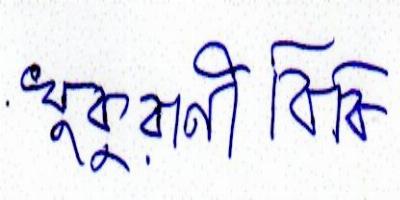 খুকুরানী বিবি